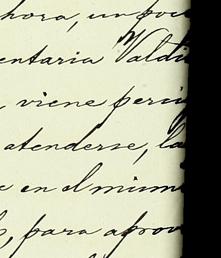 hora, un poco
entaria Valdi
, viene perju
atenderse, la
e en el mism
, para aprov